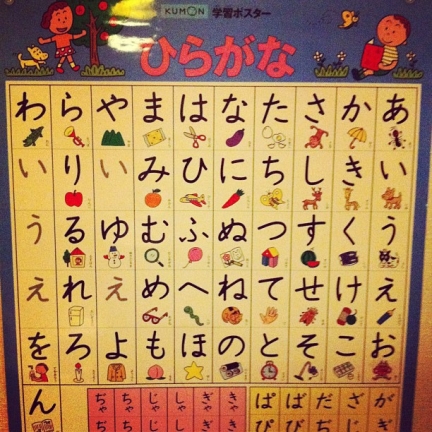 KUMON 学習ポスター
ひらがな
わ ら や ま は な た さ か あ
い り い み ひ に ち し き い
う る ゆ む ふ ぬ つ す く う
え れ え め へ ね て せ け え
を ろ よ も ほ の と そ こ お
ん ぢゃ ちゃ じゃ しゃ ぎゃ きゃ ぱ ば だ ざ が
ぴ び ぢ じ ぎ